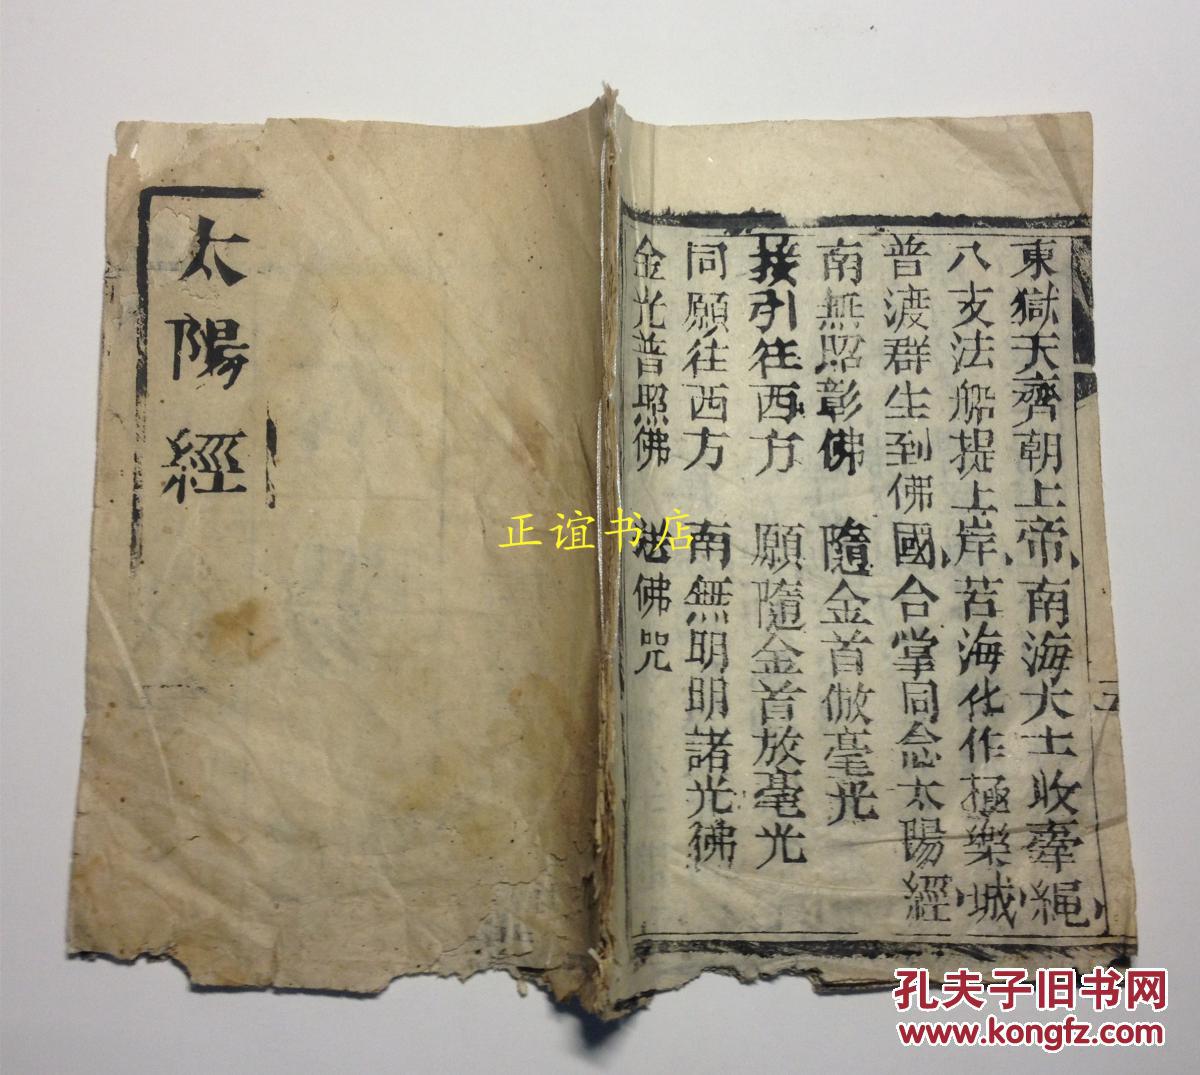 太陽經
東獄天齊朝上帝南海大士收牽繩
八支法船提上岸苦海化作極樂城
普渡群生到佛國合掌同念太陽經
南無照彰佛 隨金首倣毫光
接引往西方 願隨金首放毫光
同願往西方 南無明明諸光佛
金光普照佛 送佛咒
五
正谊书店
孔夫子旧书网
www.kongfz.com